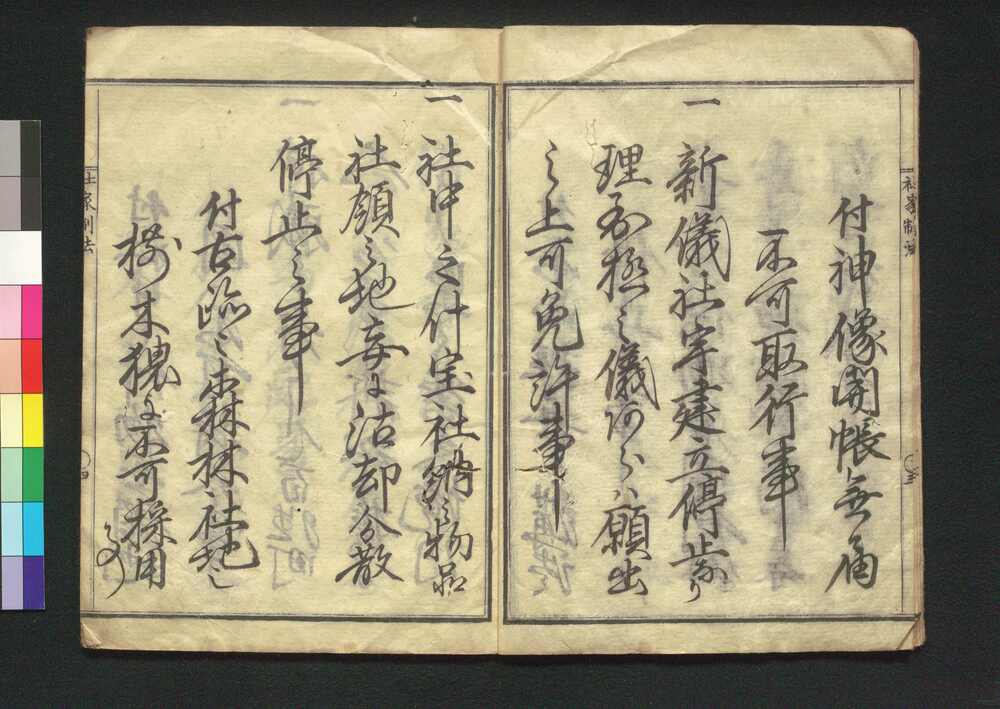 社家制法
付神像開帳無届
不可取行事
一
新儀社宇建立停止
理至極之儀有之ハ願出
之上可免許事
一
社中之什宝社納之物品
社領之地妄ニ沽却分散
停止之事
付古跡之森林社地之
樹木猥ニ不可採用
事
社家制法
四